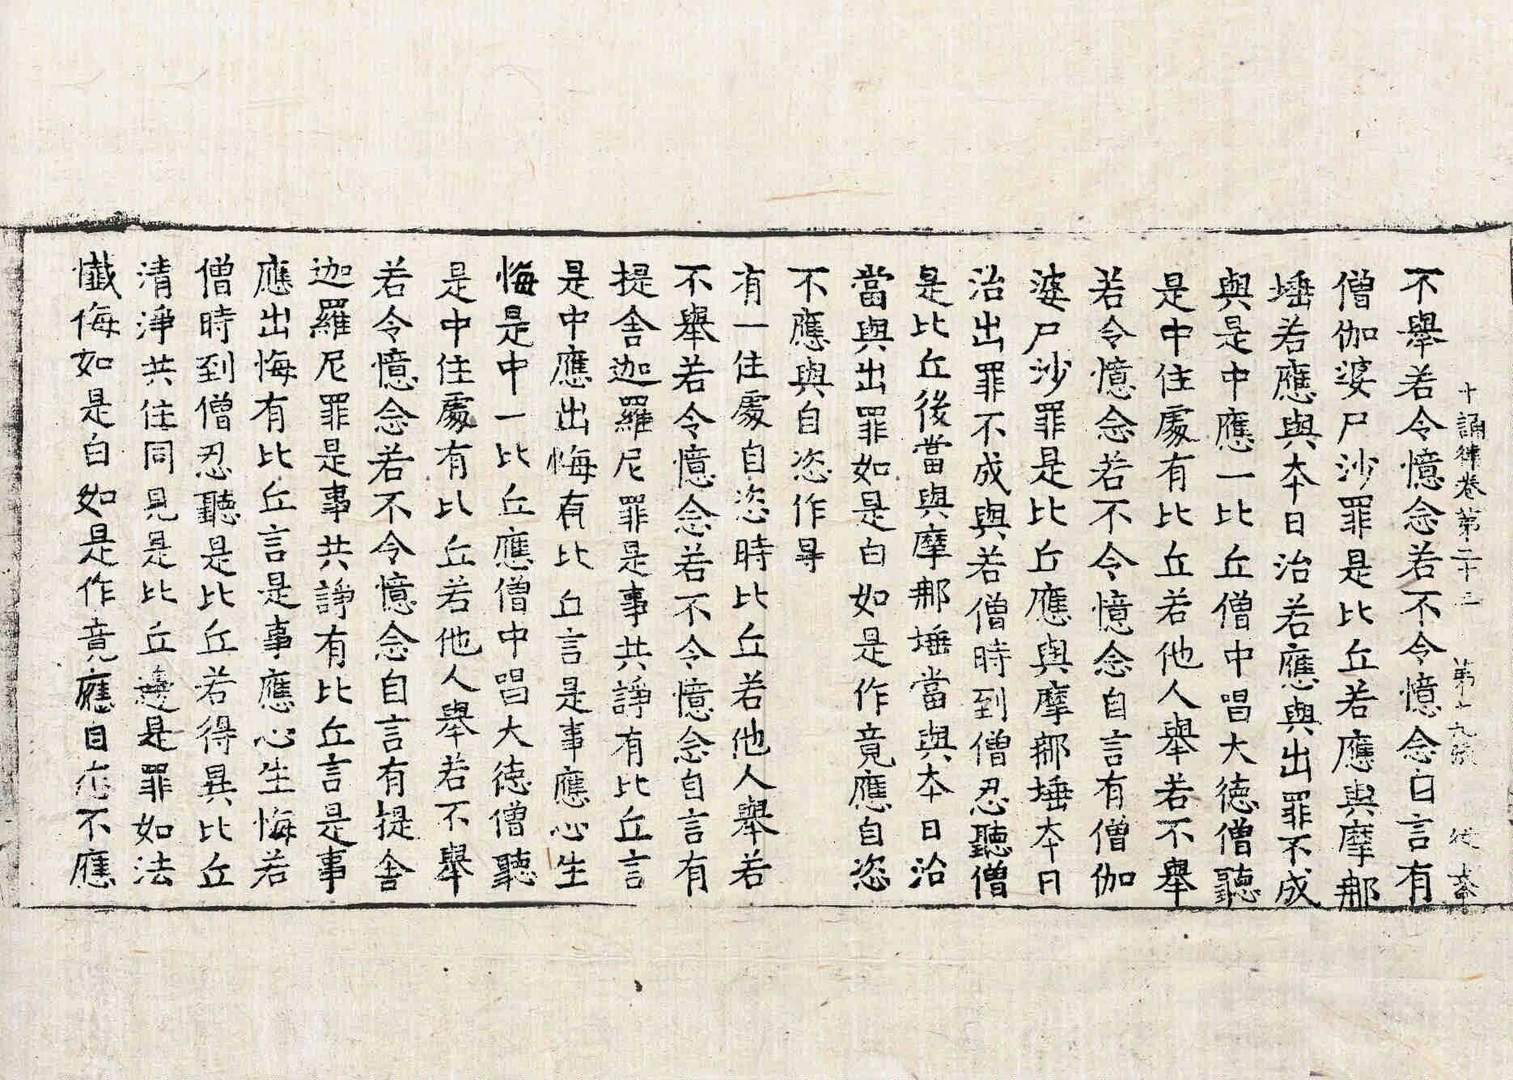 十誦律卷第二十三 第十九張 従
不舉若令憶念若不令憶念自言有
僧伽婆尸沙罪是比丘若應與摩那
埵若應與本日治若應與出罪不成
與是中應一比丘僧中唱大徳僧聽
是中住處有比丘若他人舉若不舉
若令憶念若不令憶念自言有僧伽
婆尸沙罪是比丘應與摩那埵本日
治出罪不成與若僧時到僧忍聽僧
是比丘後當與摩那埵當與本日治
當與出罪如是白如是作竟應自恣
不應與自恣作㝵
有一住處自恣時比丘若他人舉若
不舉若令憶念若不令憶念自言有
提舍迦羅尼罪是事共諍有比丘言
是中應出悔有比丘言是事應心生
悔是中一比丘應僧中唱大徳僧聽
是中住處有比丘若他人舉若不舉
若令憶念若不令憶念自言有提舍
迦羅尼罪是事共諍有比丘言是事
應出悔有比丘言是事應心生悔若
僧時到僧忍聽是比丘若得異比丘
清淨共住同見是比丘邊是罪如法
懺悔如是白如是作竟應自恣不應